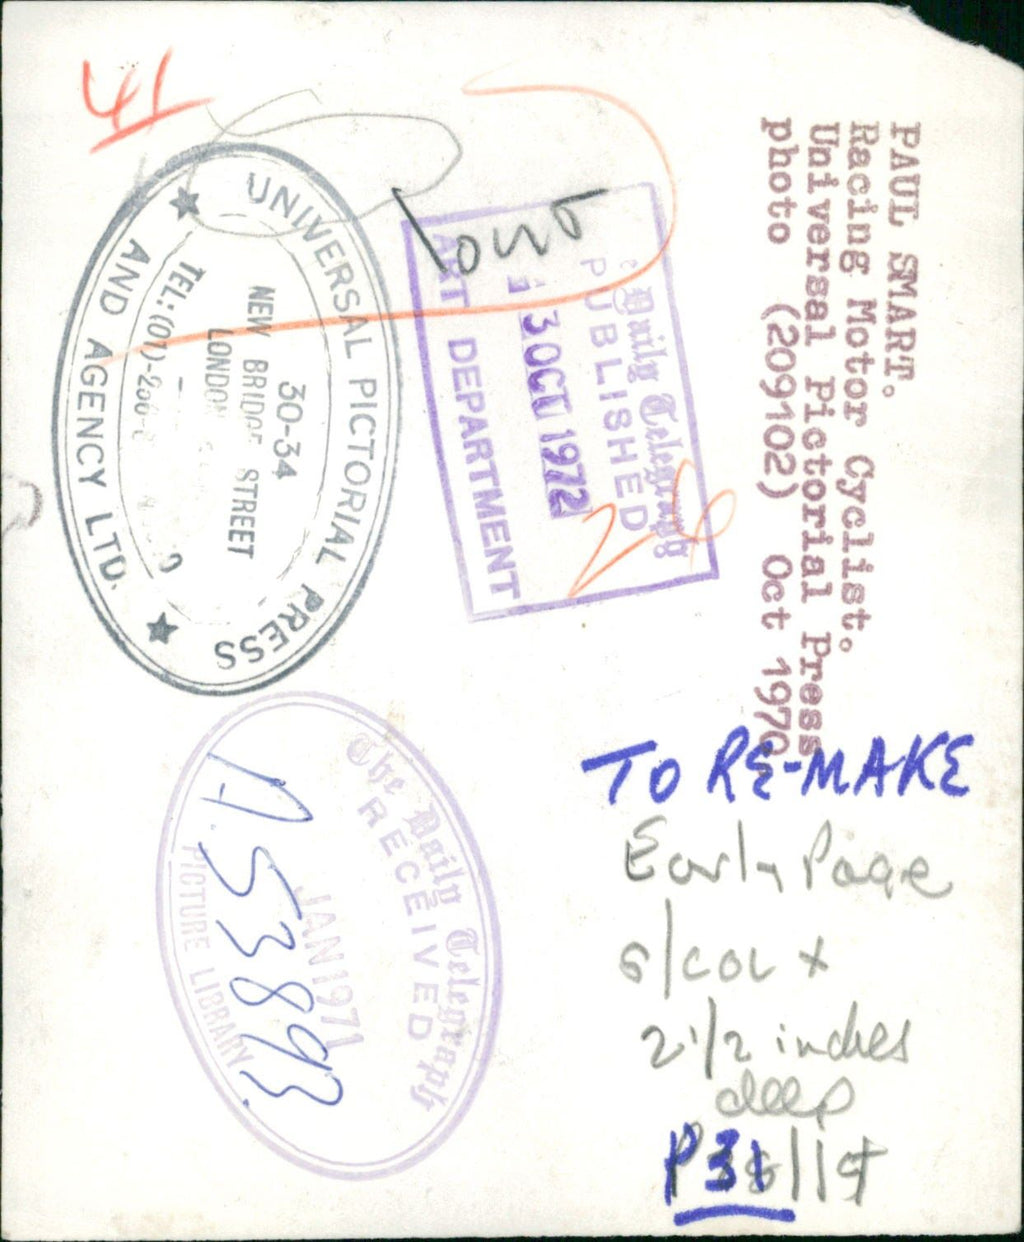 PAUL SMART.
Racing Motor Cyclist.
Universal Pictorial Press
photo (209102) Oct 1970.
UNIVERSAL PICTORIAL PRESS
AND AGENCY LTD.
30-34
NEW BRIDGE STREET
LONDON
TEL: (01)-
Daily Telegraph
PUBLISHED
13 OCT 1972
ART DEPARTMENT
26
The Daily Telegraph
RECEIVED
JAN 1971
PICTURE LIBRARY
A 53893
TO RE-MAKE
Early Page
s/col x
2 1/2 inches
deep
P31